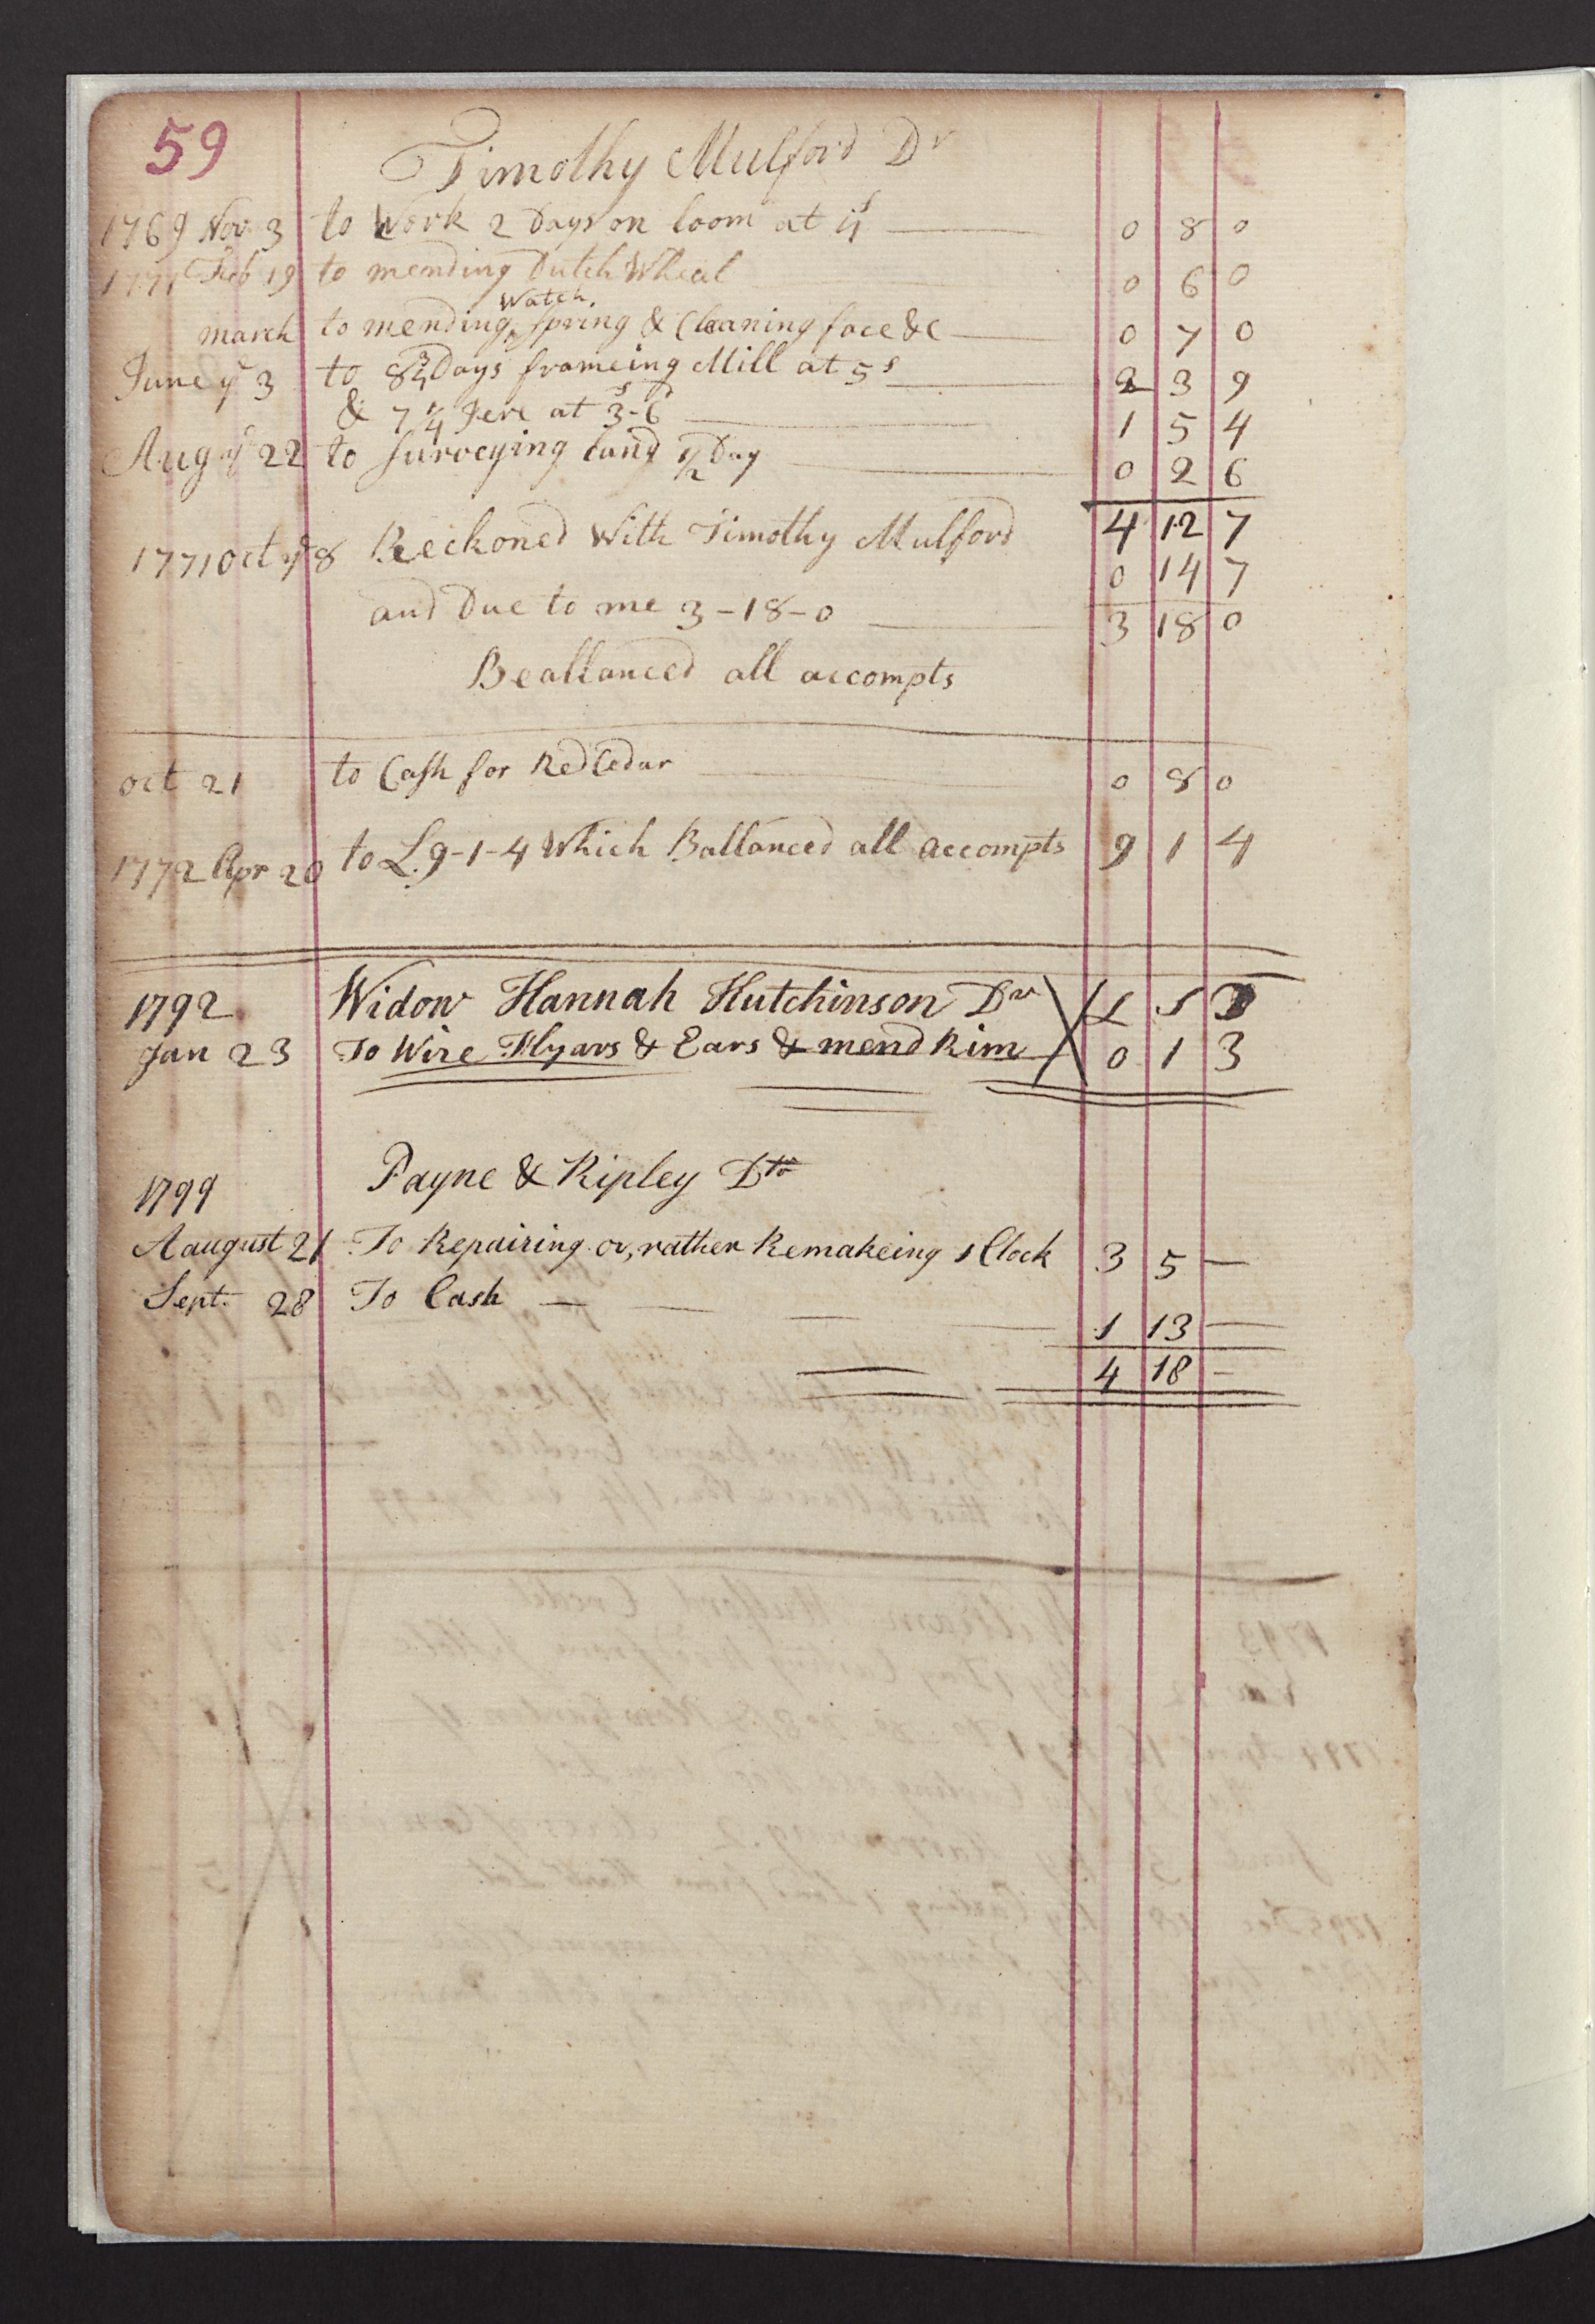 59
Timothy Mulford Dr
1769 Nov 3 to Work 2 Days on loom at 4s 0 8 0
1771 Feb 19 to mending Dutch Wheal 0 6 0
Watch
march to mending spring & Cleaning face &c 0 7 0
June ye 3 to 8 3/4 Days frameing Mill at 5s 2 3 9
& 7 1/4 Jere at 3s-6d 1 5 4
Aug ye 22 to surveying land 1/2 Day 0 2 6
4 12 7
1771 Oct ye 8 Reckoned With Timothy Mulford 0 14 7
and Due to me 3-18-0 3 18 0
Beallanced all accompts
oct 21 to Cash for Red Cedar 0 8 0
1772 Apr 20 to L.9-1-4 Which Ballanced all accompts 9 1 4
1792 Widow Hannah Hutchinson Dr L S D
Jan 23 To Wire Flyars & Ears & mend Rim 0 1 3
1799 Payne & Ripley Dto
Aaugust 21 To Repairing or, rather Remakeing 1 Clock 3 5 —
Sept. 28 To Cash — 1 13 —
4 18 —